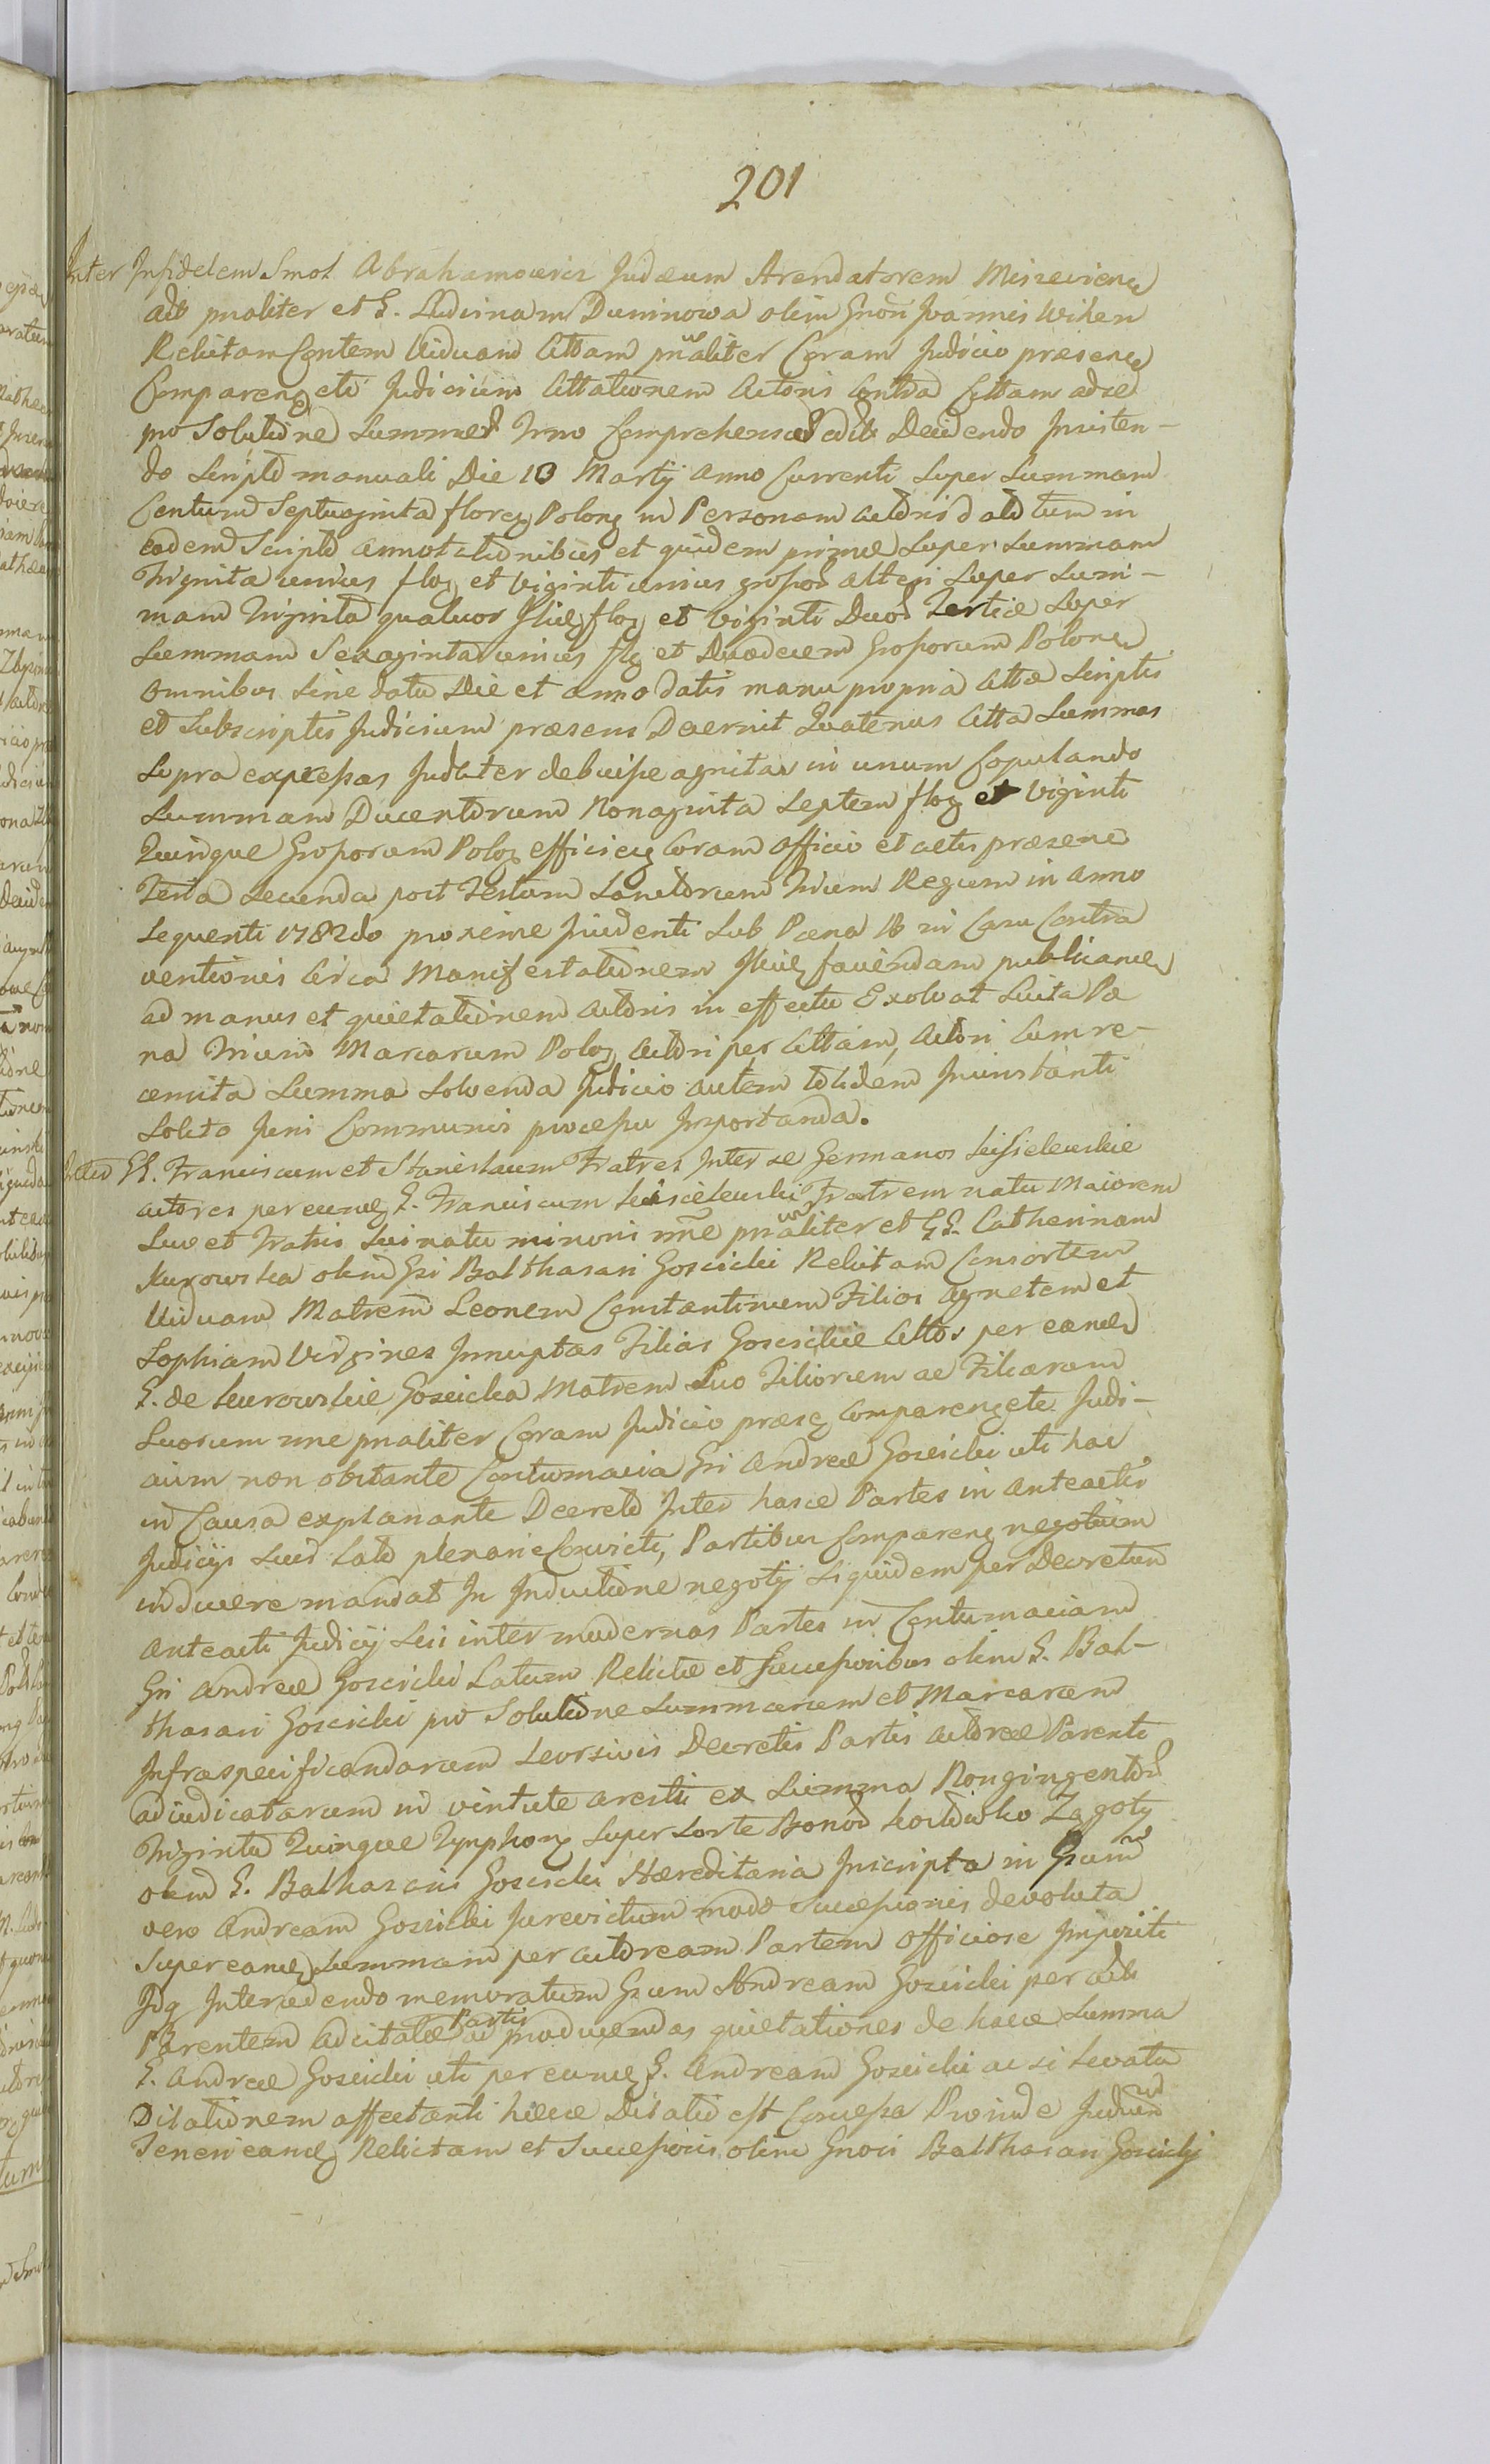 201
Inter Infidelem Smol Abrahamowicz Judæum Arendatorem
act pnaliter et G. Ludvinam Duninowa olim Gnosi Joannis Wiken
Relictam Viduam Cittam pnaliter Coram Judicio præsens
Comparen etc Judicium Cittationem Actoris Contra Cittam ad se
pro Solutione Summae Imo Comprehensae edit Decidendo Insisten-
do Scripto manuali Die 10 Martij Anno Currenti Super Summam
Centum Septuaginta floren Polon in Personam Actoris dato tum in
eodem Scripto annotationibus et quidem primae Super Summam
Triginta unius flor et viginti unius gropor alteri Super Sum-
mam Triginta quatuor flor et viginti Duor Tertiæ Super
Summam Sexaginta unius fl et Duodecem Groporum Polon
Omnibus Sine datu Die et anno datis manu propria Citta Scriptis
et Subscriptis Judicium præsens Decernit Quatenus Citta Summas
Supra expressas Judlter debuisse agnitas in unum Copulando
Summam Ducentorum Nonaginta Septem flor et viginti
Quinque Groporum Polo efficien Coram Officio et actis præsen
Feria Secunda post Festum Sanctorum Trium Regum in Anno
Sequenti 1782do proxime Sub Pæna in Casu Contra
ventionis Circa Manifestationem favendam publican
ad manus et quietationem Actoris in effectu Exolvat Luita Pæ
na Trium Marcarum Polo Actori per Cittam, Actori Cum re-
cencita Summa Solvenda Judicio autem totidem Ininstanti
Solito Juris Communis processu Importanda.
Inter GG. Franciscum et Stanislaum Fratres Inter se Germanos Kisielewskie
actores per eum G. Franciscum Kisielewski Fratrem natu Maiorem
Suo et Fratris Sui natu minoris nne pnaliter et GG. Catherinam
Kurowska olim Gsi Balthasari Goscicki Relictam Consortem
Viduam Matrem Leonem Constantinum Filios Agnetem et
Sophiam Virgines Innuptas Filias Goscickie Cittos per eand
G. de Kurowskie Goscicka Matrem Suo Filiorum ac Filiarum
Suorum nne pnaliter Coram Judicio præse Comparen etc Judi-
cium non obstante Contumacia Gsi Andreæ Goscicki uti hac
in Causa explanante Decreto Inter hasce Partes in Anteactis
Judicijs Suis Lato plenarie Convicti, Partibus Comparen negotium
inducere mandat In Inductione negotij Siquidem per Decretum
Anteacti Judicij Sui inter modernas Partes in Contumaciam
Gsi Andreæ Goscicki Latum Relictæ et Successoribus olim G. Bal-
thasari Goscicki pro Solutione Summarum et Marcarum
Infraspecificandarum Seorsivis Decretis Partis Actoreæ Parenti
adiudicatarum in virtute aresti ex Summa Nongingentor
Triginta Quinque Tynphon Super Sorte Bonor
olim G. Balthasaris Goscicki Hæreditaria Inscripta in Gsum
vero Andream Goscicki Jurevictum modo Successionis devoluta
Super eand Summam per actoream Partem Officiose Impositi
Idq Intercedendo memoratum Gsum Andream Goscicki per
Parentem adcitatae Partis ad producendas quietationes de hacce Summa
G. Andreæ Goscicki uti per eund G. Andream Goscicki ac si levata
Dilationem affectanti hæcce Dilatio est Concessa Proinde Judium
Teneri eand Relictam et Successores olim Gnosi Balthasari Goscicki